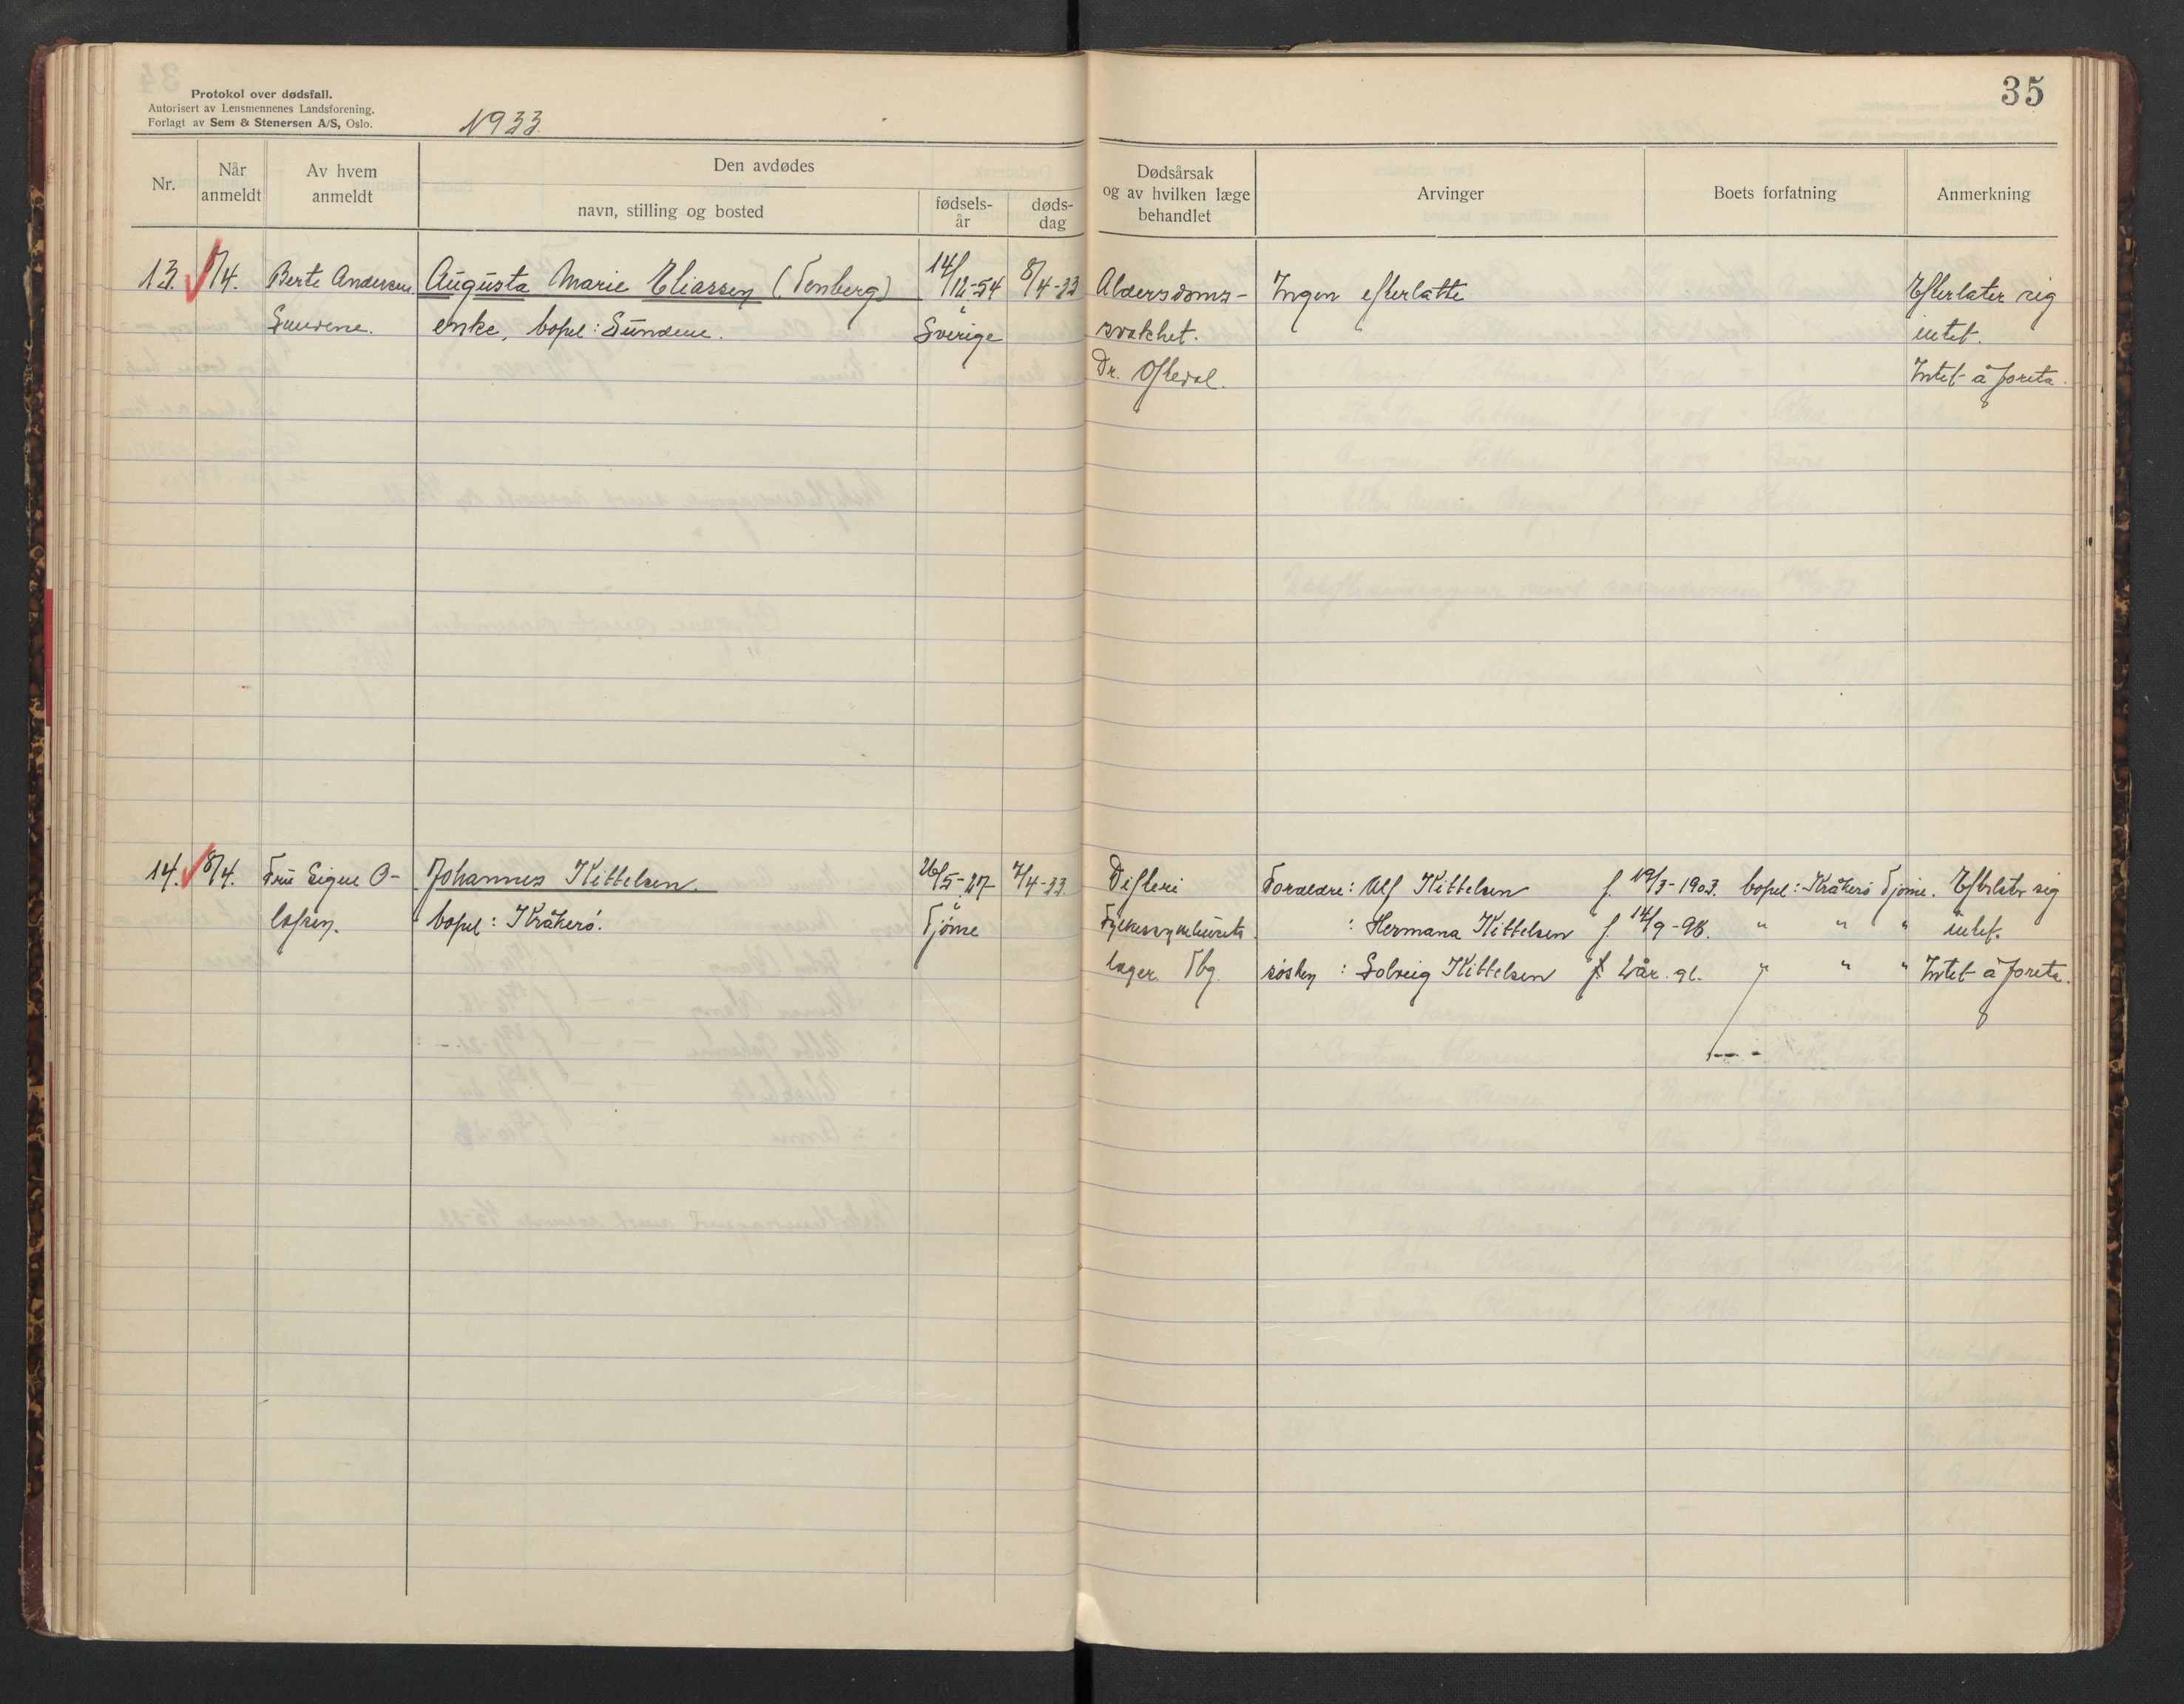 Protokol over dødsfall.
Autorisert av Lensmennenes Landsforening.
Forlagt av Sem & Stenersen A/S, Oslo.
1933.
35
Nr.
Når anmeldt
Av hvem anmeldt
Den avdødes
navn, stilling og bosted
fødsels-år
døds-dag
Dødsårsak og av hvilken læge behandlet
Arvinger
Boets forfatning
Anmerkning
13. 8/4. Berte Andersen Augusta Marie Eliassen (Tenberg) 14/12-54 8/4-33 Alderdoms- Ingen efterlatte Efterlater sig
Sundene. enke, bopel: Sundene. Sverige svakhet. intet.
Dr. Oftedal. Intet å foreta.
14. 8/4. Fru Signe O- Johannes Kittelsen. 26/5-27 7/4-33. Difteri Foreldre: Alf Kittelsen f. 19/3-1903. bopel: Kråkerø Tjøme. Efterlater sig
lafsen. bopel: Kråkerø. Tjøme Fylkessykehusets : Hermana Kittelsen f. 14/9-98. " " " intet.
læger. Tbg. søsken : Solveig Kittelsen 2 år. gl. " " " Intet å foreta.